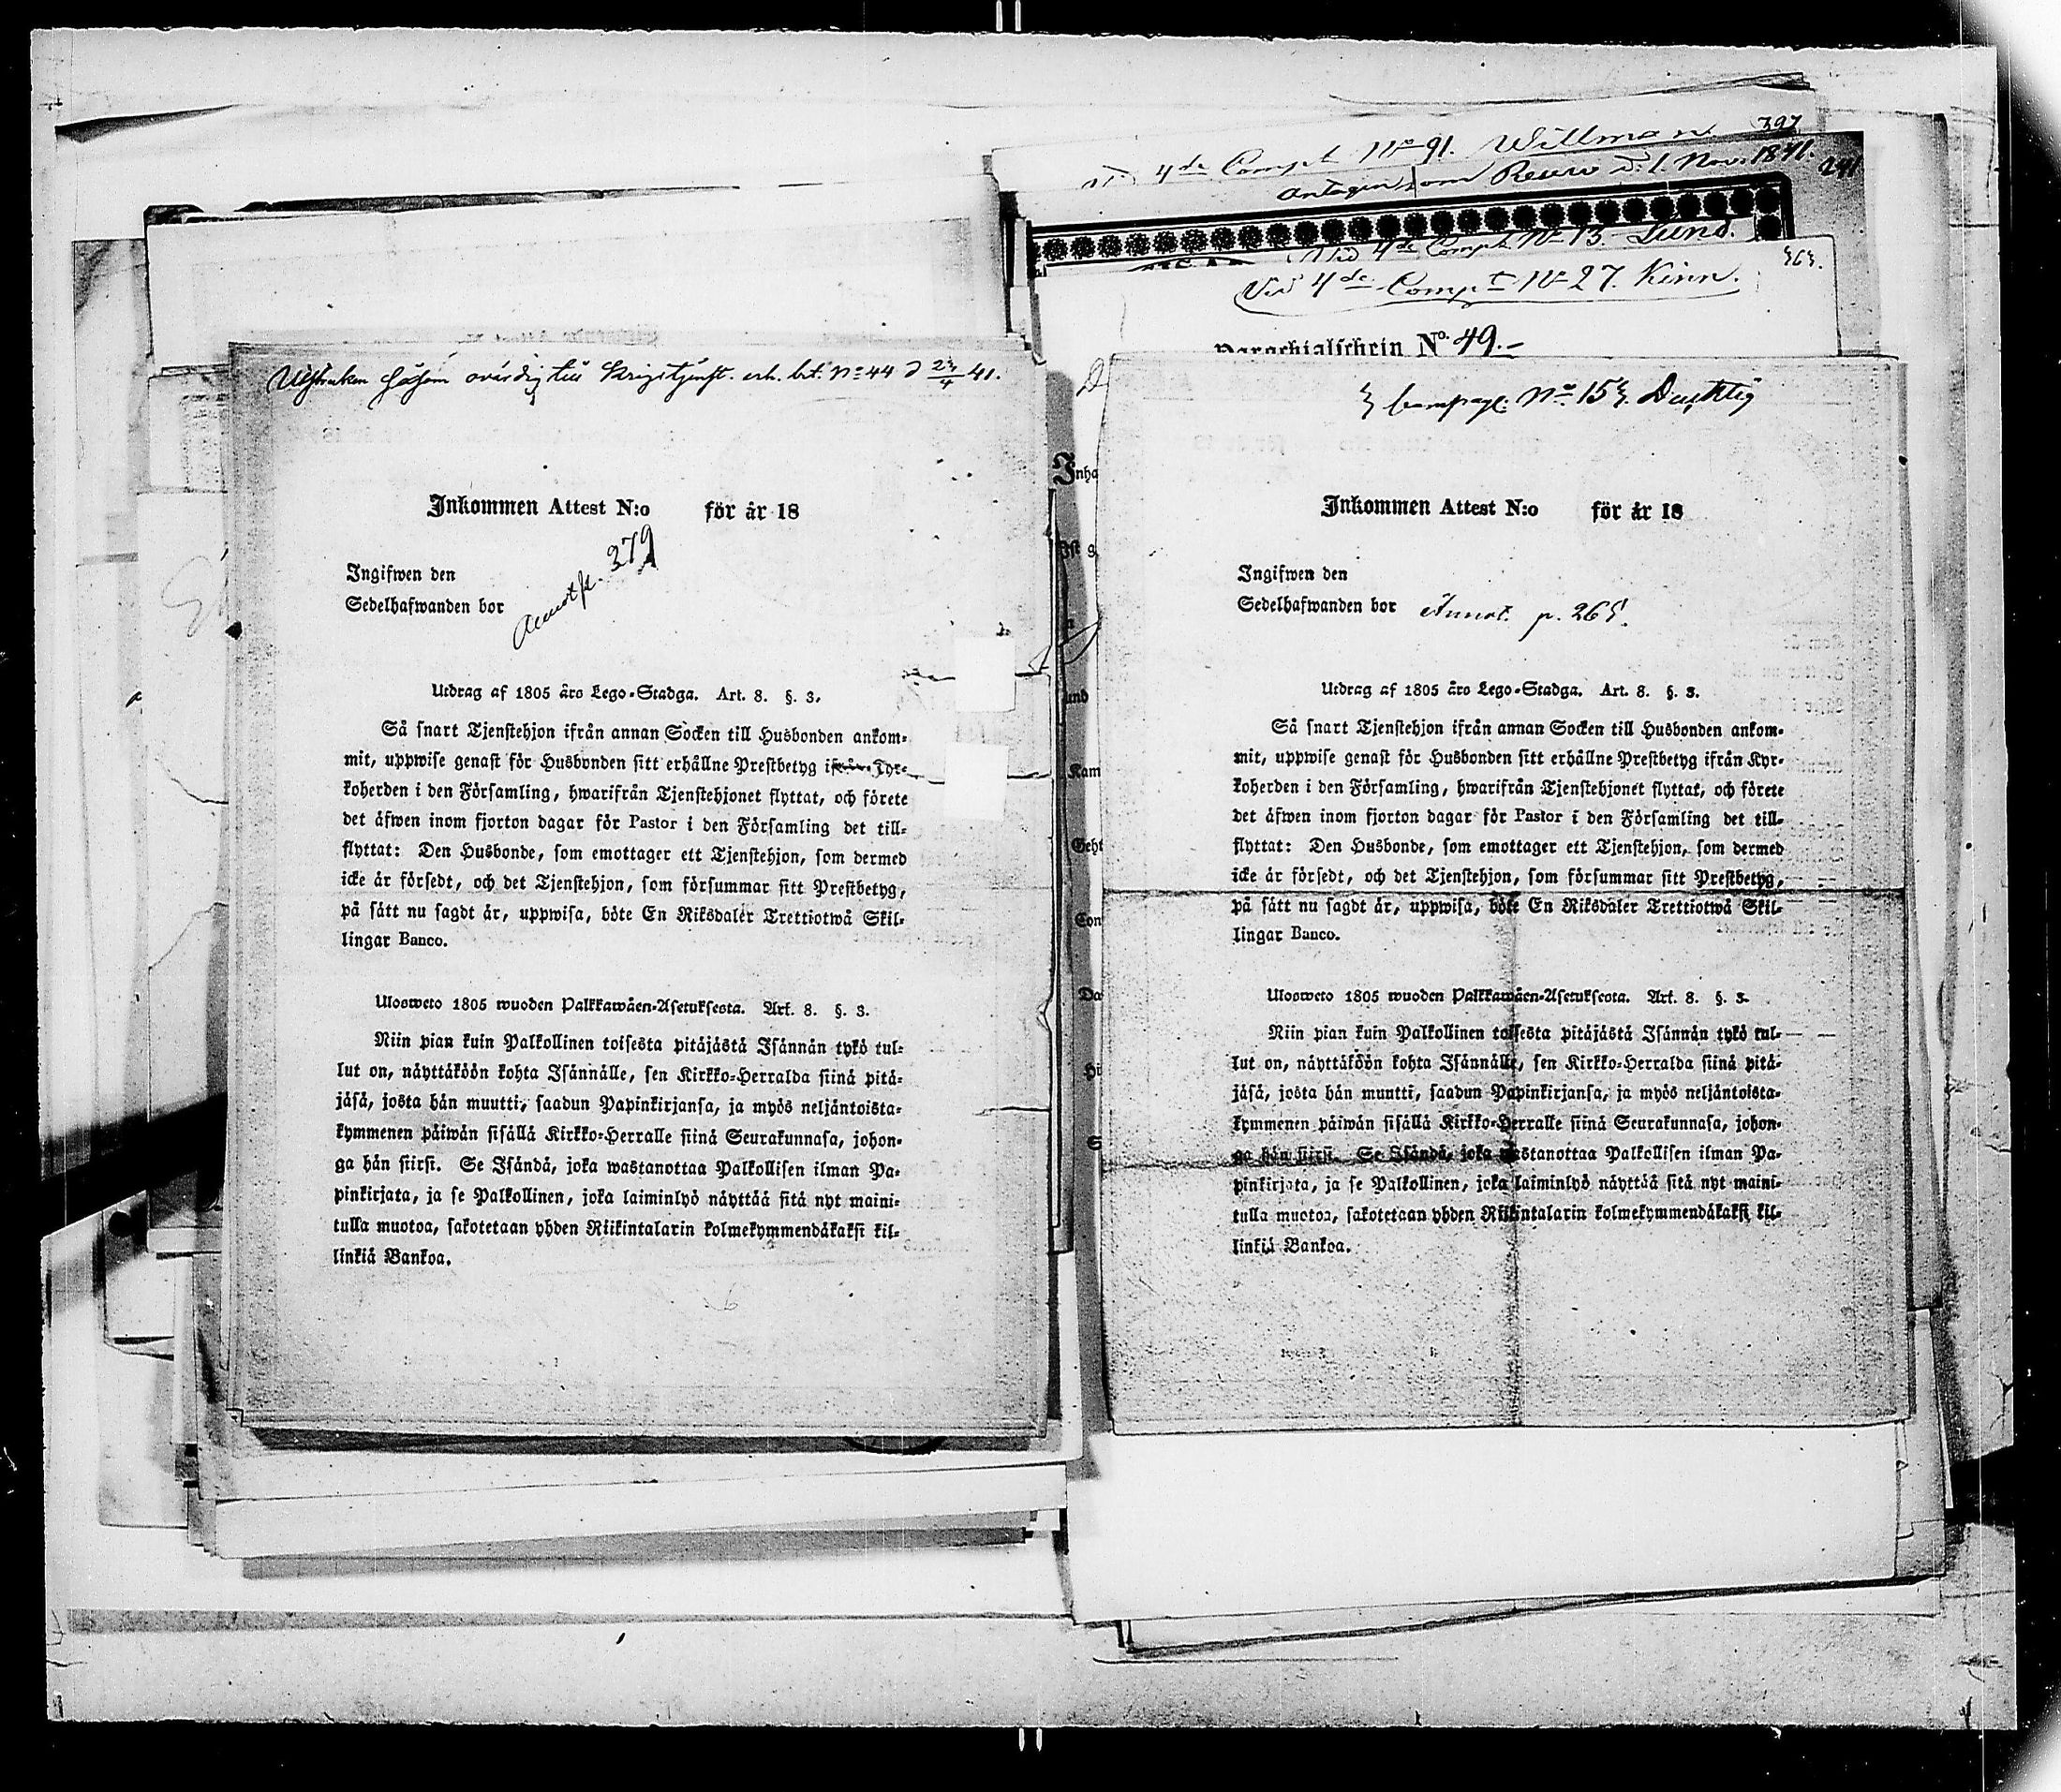 Utstruken såsom ovärdig till krigstjenst. enl. bref. No 44 d 23/4 41.
Inkommen Attest N:o för år 18
Ingifwen den
Sedelhafwanden bor
Annot p. 379
Utdrag af 1805 års Lego-Stadga. Art. 8. §. 3.
Så snart Tjenstehjon ifrån annan Socken till Husbonden ankom-
mit, uppwise genast för Husbonden sitt erhållne Prestbetyg ifrån Kyr-
koherden i den Församling, hwarifrån Tjenstehjonet flyttat, och förete
det äfwen inom fjorton dagar för Pastor i den Församling det till-
flyttat: Den Husbonde, som emottager ett Tjenstehjon, som dermed
icke är försedt, och det Tjenstehjon, som försummar sitt Prestbetyg,
på sätt nu sagdt är, uppwisa, böte En Riksdaler Trettiotwå Skil-
lingar Banco.
Ulosweto 1805 wuoden Palkkawäen-Asetuksesta. Art. 8. §. 3.
Niin pian kuin Palkollinen toisesta pitäjästä Isännän tykö tul-
lut on, näyttäköön kohta Isännälle, sen Kirkko-Herralda siinä pitä-
jäsä, josta hän muutti, saadun Papinkirjansa, ja myös neljäntoista-
kymmenen päiwän sisällä Kirkko-Herralle siinä Seurakunnasa, johon-
ga hän siirsi. Se Isändä, joka wastanottaa Palkollisen ilman Pa-
pinkirjata, ja se Palkollinen, joka laiminlyö näyttää sitä nyt maini-
tulla muotoa, sakotetaan yhden Riikintalarin kolmekymmendäkaksi kil-
linkiä Bankoa.
4de Compt No 91. Willman 397
antagen som Recru d. 1. Nov. 1841. 241
Vid 4de Compt No 13. Lund.
Vid 4de Compt No 27. Kinn. 363.
Parochialschein No. 49.-
Inha
Ist g
und
Kam
Geht
Con
Da
Hi
S
3 Compagn: No 153. Ducktig
Inkommen Attest N:o för år 18
Ingifwen den
Sedelhafwanden bor Annot. p. 265.
Utdrag af 1805 års Lego-Stadga. Art. 8. §. 3.
Så snart Tjenstehjon ifrån annan Socken till Husbonden ankom-
mit, uppwise genast för Husbonden sitt erhållne Prestbetyg ifrån Kyr-
koherden i den Församling, hwarifrån Tjenstehjonet flyttat, och förete
det äfwen inom fjorton dagar för Pastor i den Församling det till-
flyttat: Den Husbonde, som emottager ett Tjenstehjon, som dermed
icke är försedt, och det Tjenstehjon, som försummar sitt Prestbetyg,
på sätt nu sagdt är, uppwisa, böte En Riksdaler Trettiotwå Skil-
lingar Banco.
Ulosweto 1805 wuoden Palkkawäen-Asetuksesta. Art. 8. §. 3.
Niin pian kuin Palkollinen toisesta pitäjästä Isännän tykö tul-
lut on, näyttäköön kohta Isännälle, sen Kirkko-Herralda siinä pitä-
jäsä, josta hän muutti, saadun Papinkirjansa, ja myös neljäntoista-
kymmenen päiwän sisällä Kirkko-Herralle siinä Seurakunnasa, johon-
ga hän siirsi. Se Isändä, joka wastanottaa Palkollisen ilman Pa-
pinkirjata, ja se Palkollinen, joka laiminlyö näyttää sitä nyt maini-
tulla muotoa, sakotetaan yhden Riikintalarin kolmekymmendäkaksi kil-
linkiä Bankoa.